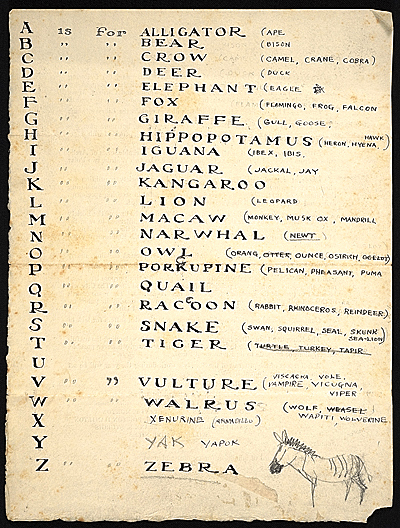 A is For ALLIGATOR (APE
B " " BEAR (BISON
C " " CROW (CAMEL, CRANE, COBRA)
D " " DEER (DUCK
E " " ELEPHANT (EAGLE
F " " FOX (FLAMINGO, FROG, FALCON
G " " GIRAFFE (GULL, GOOSE,
H " " HIPPOPOTAMUS (HERON, HYENA, HAWK
I " " IGUANA (IBEX, IBIS.
J " " JAGUAR (JACKAL, JAY
K " " KANGAROO
L " " LION (LEOPARD
M " " MACAW (MONKEY, MUSK OX, MANDRILL
N " " NARWHAL (NEWT)
O " " OWL (ORANG, OTTER, OUNCE, OSTRICH, OCELOT)
P " " PORKUPINE (PELICAN, PHEASANT, PUMA
C
Q " " QUAIL
R " " RACOON (RABBIT, RHINOCEROS, REINDEER)
C
S " " SNAKE (SWAN, SQUIRREL, SEAL, SKUNK)
SEA-LION
T " " TIGER (TURTLE, TURKEY, TAPIR
U
VISCACHA, VOLE,
V " " VULTURE (VAMPIRE VICUGNA,
VIPER
W " " WALRUS (WOLF WEASEL
WAPITI WOLVERINE
X XENURINE (ARMADILLO)
Y YAK YAPOK
Z " " ZEBRA